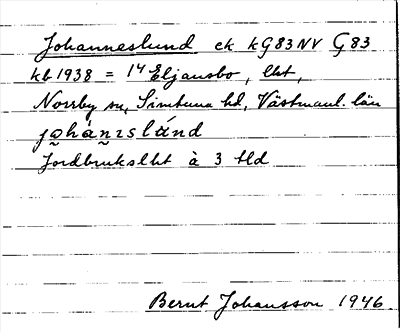 Johanneslund ek kG83NV G83
kb 1938 = 14 8 Eljansbo, lht,
Norrby sn, Simtuna hd, Västmanl. län
johánıslánd
Jordbrukslht à 3 tld
Bernt Johansson 1946